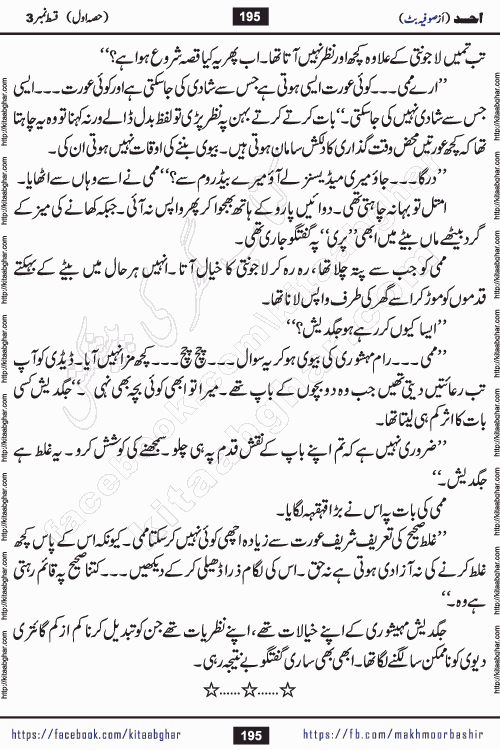 احمد (از صوفیہ بٹ) 195 (حصہ اول) قسط نمبر 3
تب تمہیں لاجونتی کے علاوہ کچھ اور نظر نہیں آتا تھا۔ اب پھر یہ کیا قصہ شروع ہوا ہے؟‘‘
’’ارے ممی ۔۔۔ کوئی عورت ایسی ہوتی ہے جس سے شادی کی جا سکتی ہے اور کوئی عورت ۔۔۔ ایسی
جس سے شادی نہیں کی جا سکتی۔‘‘ بات کرتے کرتے بہن پہ نظر پڑی تو لفظ بدل ڈالے ورنہ کہنا تو وہ یہ چاہتا
تھا کہ کچھ عورتیں محض وقت گذاری کا دلکش سامان ہوتی ہیں۔ بیوی بننے کی اوقات نہیں ہوتی ان کی۔
’’درگا ۔۔۔ جاؤ میری میڈیسنز لے آؤ میرے بیڈ روم سے؟‘‘ ممی نے اسے وہاں سے اٹھایا۔
امتل تو بہانہ چاہتی تھی۔ دوائیں پارو کے ہاتھ بھجوا کر پھر واپس نہ آئی۔ جبکہ کھانے کی میز کے
گرد بیٹھے ماں بیٹے میں ابھی ’’پری‘‘ پہ گفتگو جاری تھی۔
ممی کو جب سے پتہ چلا تھا، رہ رہ کر لاجونتی کا خیال آتا۔ انہیں ہر حال میں بیٹے کے بہکتے
قدموں کو موڑ کر اسے گھر کی طرف واپس لانا تھا۔
’’ایسا کیوں کر رہے ہو جگدیش؟‘‘
’’ممی ۔۔۔ رام مہشوری کی بیوی ہو کر یہ سوال ۔۔۔ چچ چچ ۔۔۔ کچھ مزا نہیں آیا۔ ڈیڈی کو آپ
تب رعائتیں دیتی تھیں جب وہ دو بچوں کے باپ تھے۔ میرا تو ابھی کوئی بچہ بھی نہی ۔‘‘ جگدیش کسی
بات کا اثر کم ہی لیتا تھا۔
’’ضروری نہیں ہے کہ تم اپنے باپ کے نقش قدم پہ ہی چلو۔ سمجھنے کی کوشش کرو۔ یہ غلط ہے
جگدیش۔‘‘
ممی کی بات پہ اس نے بڑا قہقہہ لگایا۔
’’غلط صحیح کی تعریف شریف عورت سے زیادہ اچھی کوئی نہیں کر سکتا ممی۔ کیونکہ اس کے پاس کچھ
غلط کرنے کی نہ آزادی ہوتی ہے نہ حق۔ اس کی لگام ذرا ڈھیلی کر کے دیکھیں ۔۔۔ کتنا صحیح پہ قائم رہتی
ہے وہ۔‘‘
جگدیش مہیشوری کے اپنے خیالات تھے، اپنے نظریات تھے جن کو تبدیل کرنا کم از کم گائتری
دیوی کو ناممکن سا لگنے لگا تھا۔ ابھی بھی ساری گفتگو بے نتیجہ رہی۔
☆......☆......☆
https://facebook.com/kitaabghar 195 https://fb.com/makhmoorbashir
http://kitaabghar.com
facebook.com/kitaabghar